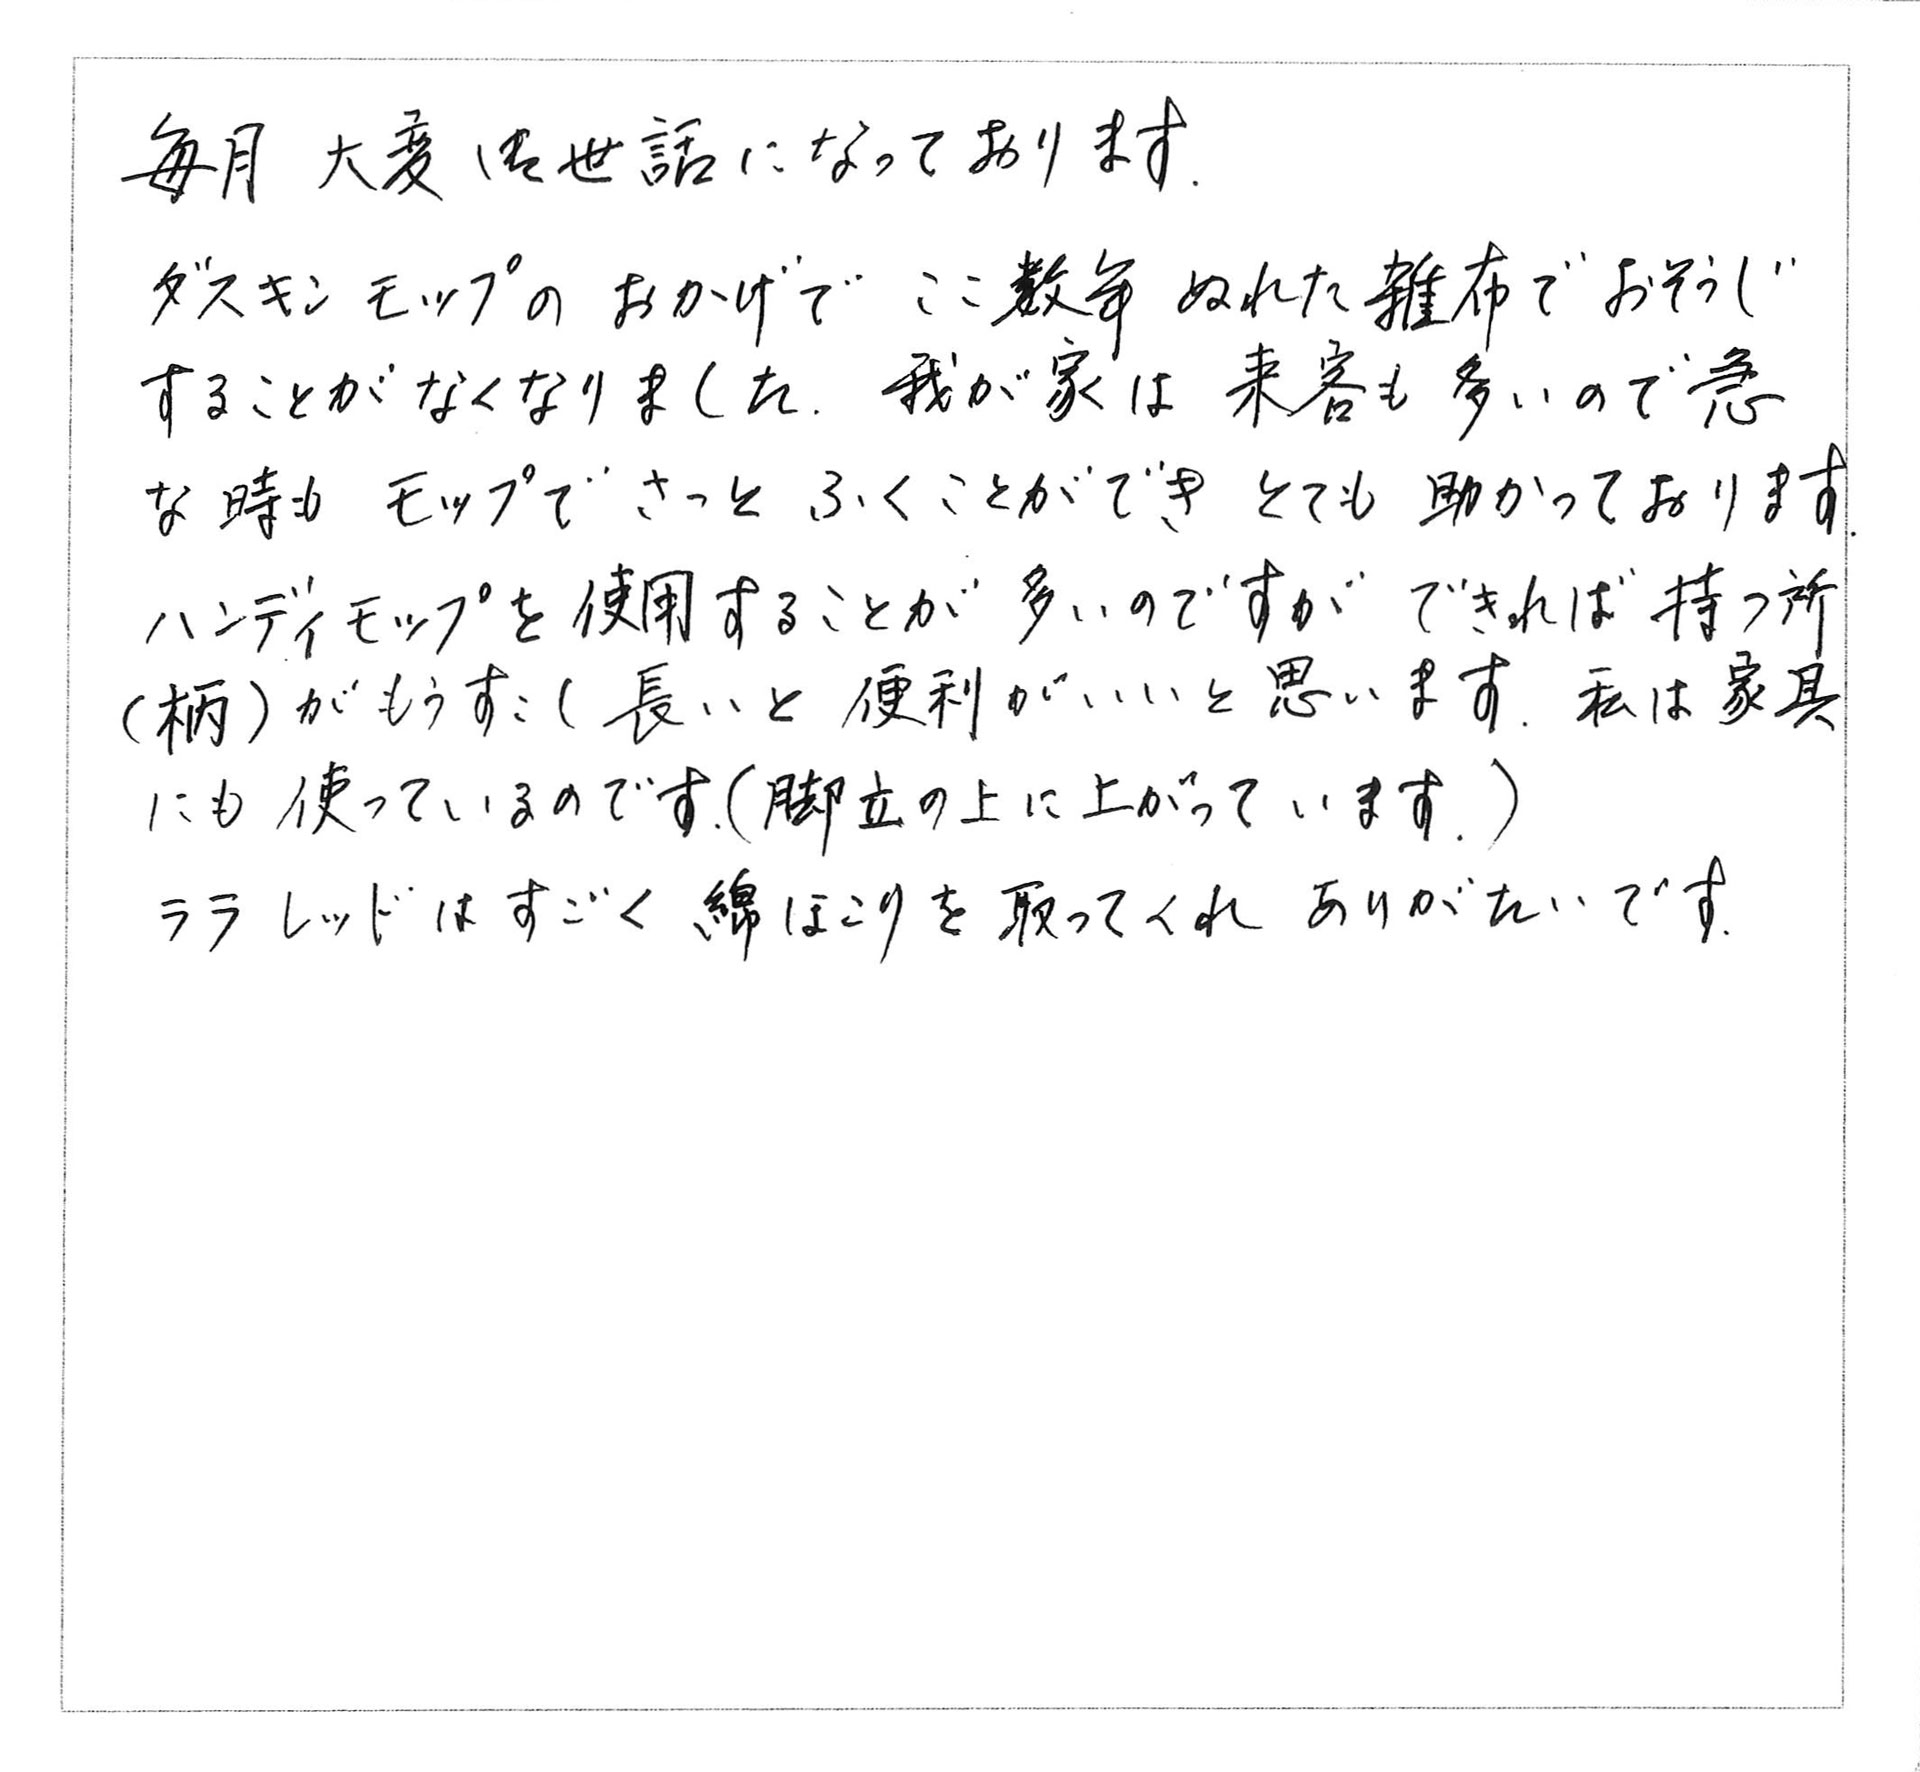 毎月 大変 お世話になっております.
ダスキン モップの おかげで ここ数年 ぬれた雑布で おそうじ
することが なくなりました. 我が家は 来客も 多いので 急
な時も モップで さっと ふくことができ とても 助かっております.
ハンディモップを使用することが 多いのですが できれば 持つ所
(柄)がもうすこし長いと 便利がいいと思います. 私は家具
にも 使っているのです.(脚立の上に上がっています.)
ララ レッドは すごく 綿ほこりを 取ってくれ ありがたいです.